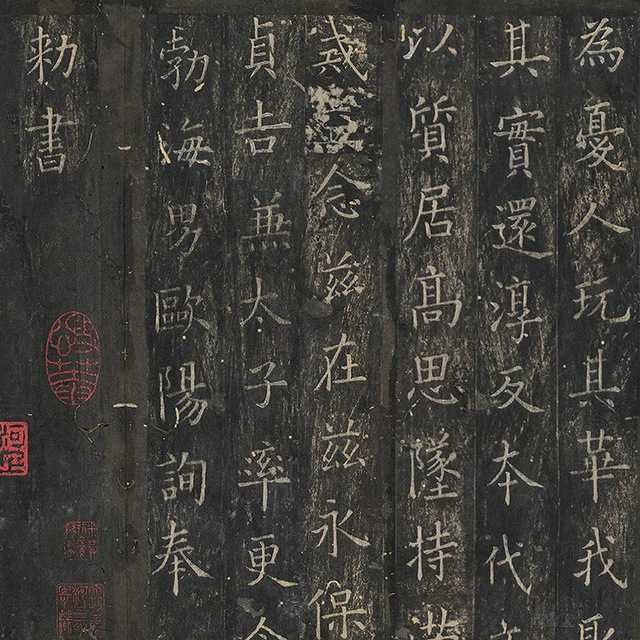 為憂人玩其華我取
其實還淳反本代
以質居高思墜持滿
戒盈念茲在茲永保
貞吉兼太子率更令
勃海男歐陽詢奉
勅書